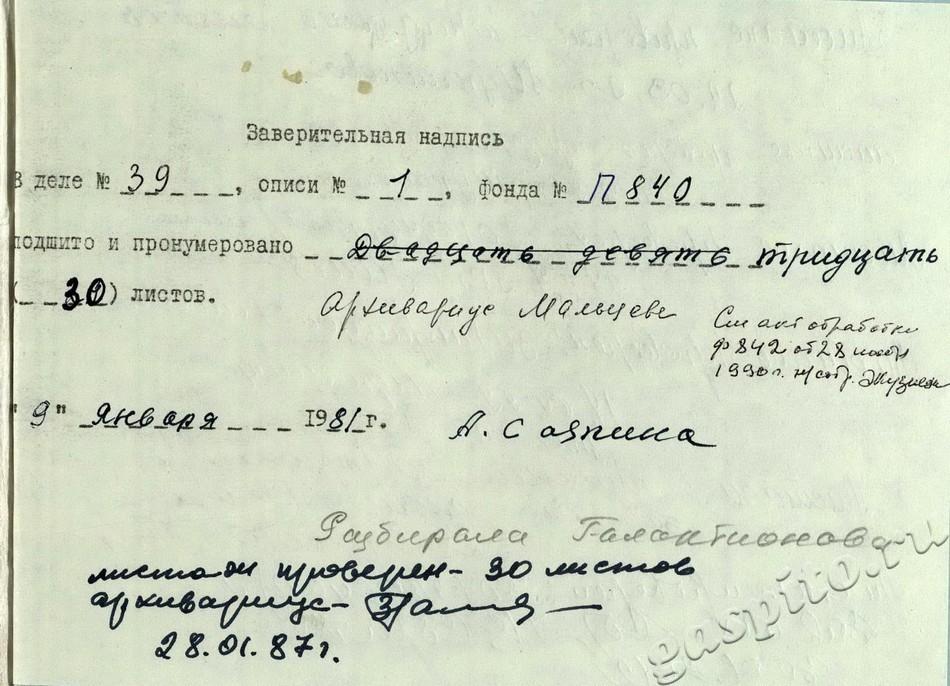 Заверительная надпись
В деле № 39, описи № 1, фонда № П 840
подшито и пронумеровано Двадцать девять тридцать
(30) листов.
архивариус Мальцева
См акт обработки
ф 842 от 28 нояб
1990г.
"9" января 1981г.
А.
Разбирала Галактионова
листаж проверен - 30 листов
архивариус -
28.01.87г.
gaspito.ru